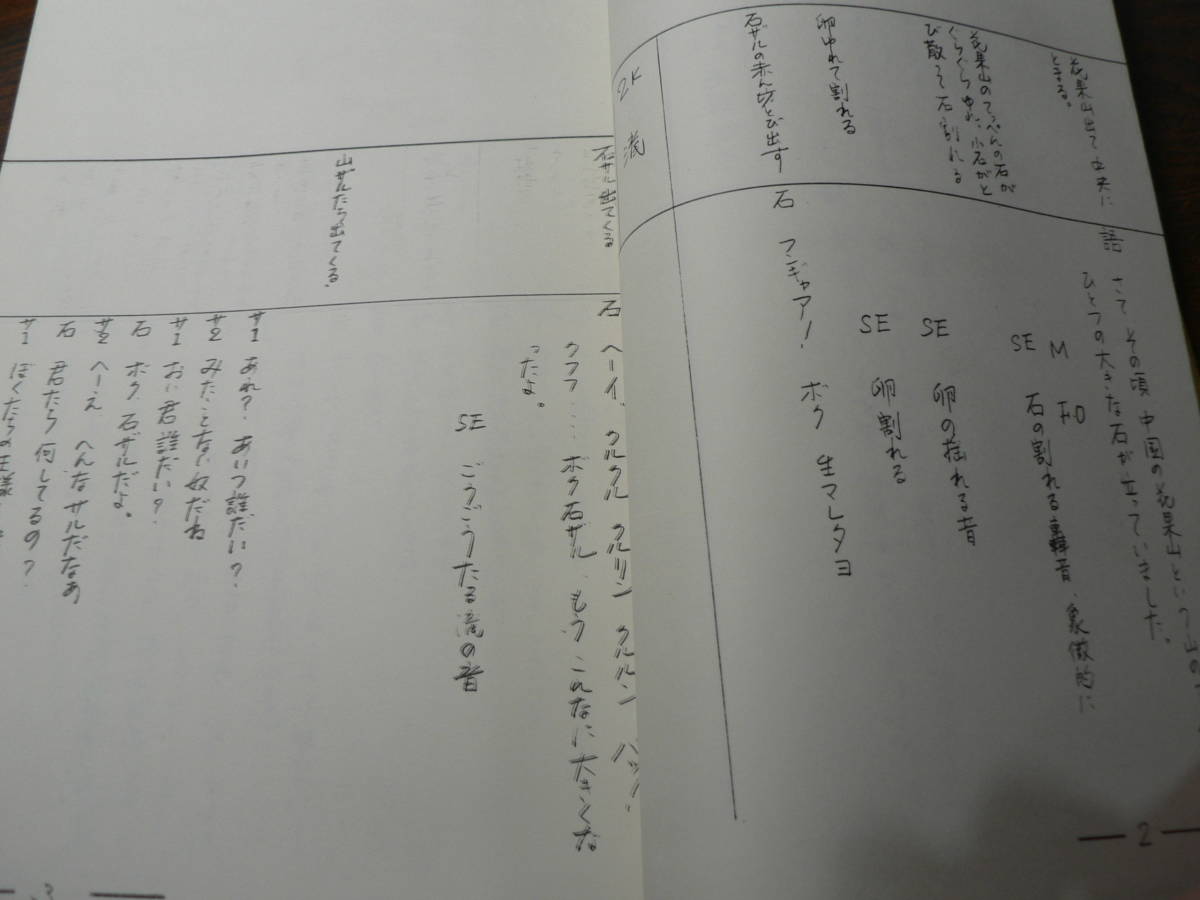 花果山出て 中央に
とまる。
語 さて その頃 中国の花果山という山の
ひとつの大きな石が立っていました。
M FO
SE 石の割れる轟音、象徴的に
花果山のてっぺんの石が
ぐらぐらゆれ、小石がと
び散って石割れる
SE 卵の揺れる音
卵ゆれて割れる
SE 卵割れる
石ザルの赤ん坊とび出す
石 フンギャア! ボク 生マレタヨ
2K 滝
2
石ザル出てくる
石 ヘーイ、クルクル クルリン クルルン パッ!
ウフフ…… ボク石ザル、もう こんなに大きくな
ったよ。
SE ごうごうたる滝の音
山ザルたち出てくる
サ1 あれ? あいつ誰だい?
サ2 みたことない奴だね
サ1 おい君誰だい?
石 ボク 石ザルだよ。
サ2 へーえ へんなサルだなあ
石 君たち 何してるの?
サ1 ぼくたちの王様
3